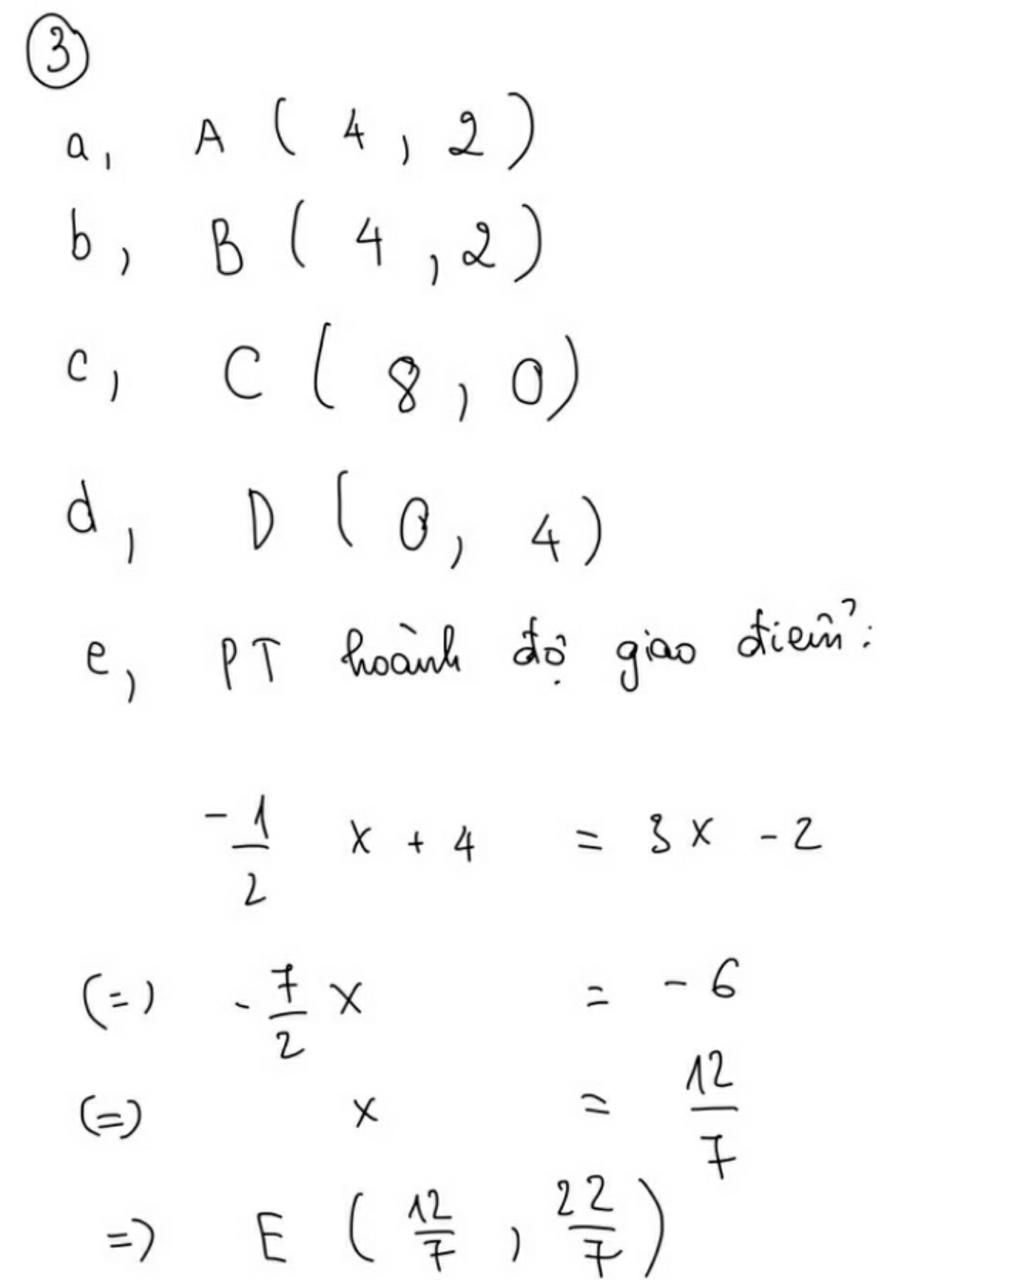 3
a, A ( 4 , 2 )
b, B ( 4 , 2 )
c, C ( 8 , 0 )
d, D ( 0 , 4 )
e, PT hoành độ giao điểm:
-1/2 x + 4 = 3x - 2
(=) -7/2 x = - 6
(=) x = 12/7
=) E ( 12/7 , 22/7 )